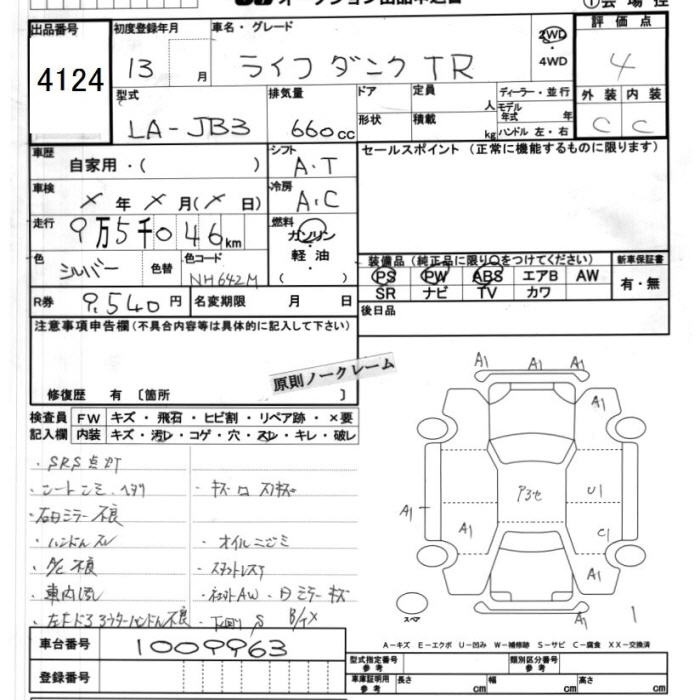 出品番号
4124
初度登録年月
13 月
車名・グレード
ライフ ダンク TR
2WD
・
4WD
評価点
4
型式
LA-JB3
排気量
660 cc
ドア
形状
定員
人
積載
kg
ディーラー・並行
モデル
年式 年
ハンドル 左・右
外装 内装
C C
車歴
自家用・( )
シフト
A・T
セールスポイント (正常に機能するものに限ります)
車検
× 年 × 月(× 日)
冷房
A・C
走行
9万5千046km
燃料
ガソリン
・
軽油
・
( )
色
シルバー
色替
色コード
NH642M
装備品(純正品に限り○をつけてください)
PS PW ABS エアB AW
SR ナビ TV カワ
新車保証書
有・無
R券
9,540 円
名変期限 月 日
後日品
注意事項申告欄(不具合内容等は具体的に記入して下さい)
原則ノークレーム
修復歴 有 〔箇所 〕
検査員
記入欄
FW キズ・飛石・ヒビ割・リペア跡・×要
内装 キズ・汚レ・コゲ・穴・スレ・キレ・破レ
・SRS点灯
・シートシミ、ヘタリ
・ハンドルスレ
・A/C 不良
・オイルニジミ
A1 A1 A1
A1 A1
A1 A1
P3セ
U1
C1
A1
A1
スペア
1
A-キズ E-エクボ U-凹み W-補修跡 S-サビ C-腐食 XX-交換済
車台番号
1009963
登録番号
型式指定番号
参考
類別区分番号
参考
車庫証明用
参考
長さ cm
幅 cm
高さ cm